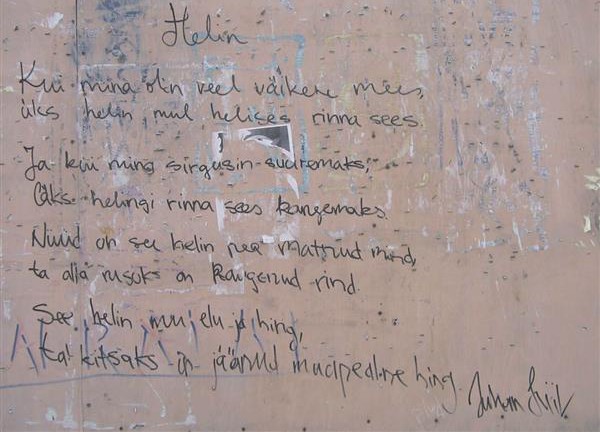 Helin
Kui mina olin veel väikene mees,
üks helin mul helises rinna sees.
Ja kui mina sirgusin suuremaks,
läks helingi rinna sees kangemaks.
Nüüd on see helin pea matnud mind,
ta alla rusuks on langenud rind.
See helin mu elu ja hing,
tal kitsaks on jäänud maapealne ring.
Juhan Liiv